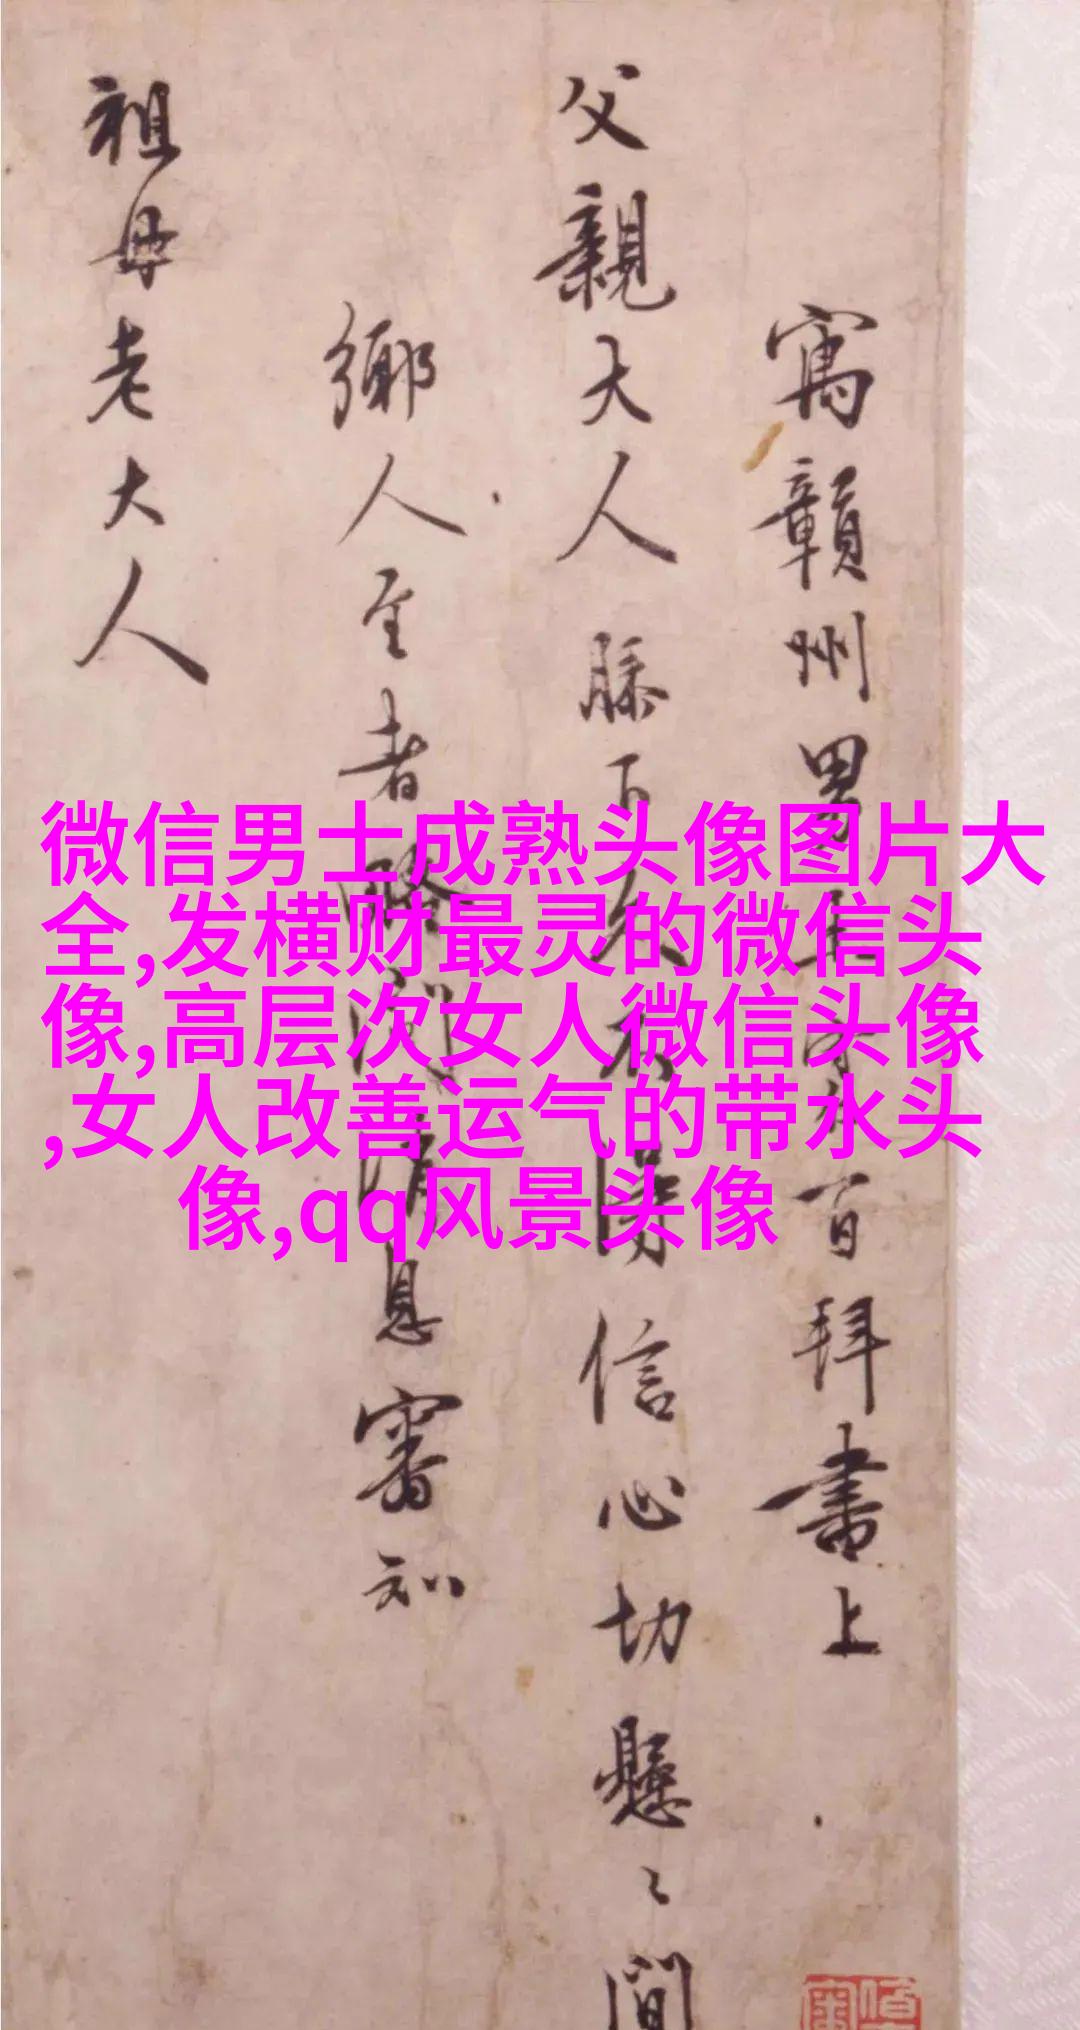 寓贛州男王守仁百拜書上
父親大人膝下久不得信心切懸〻間
鄉人至者消息審知
祖母老大人
微信男士成熟头像图片大
全,发横财最灵的微信头
像,高层次女人微信头像
,女人改善运气的带水头
像,qq风景头像